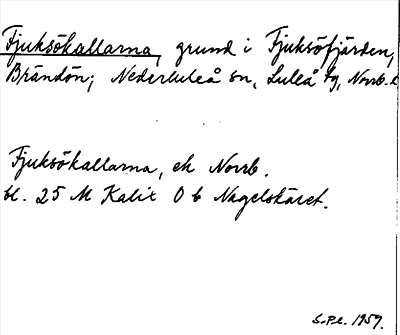 Fjuksökallarna, grund i Fjuksöfjärden,
Brändön; Nederluleå sn, Luleå tg, Norrb. l
Fjuksökallarna, ek Norrb.
bl. 25 M Kalix O b Nagelskäret.
S.Pl. 1959.